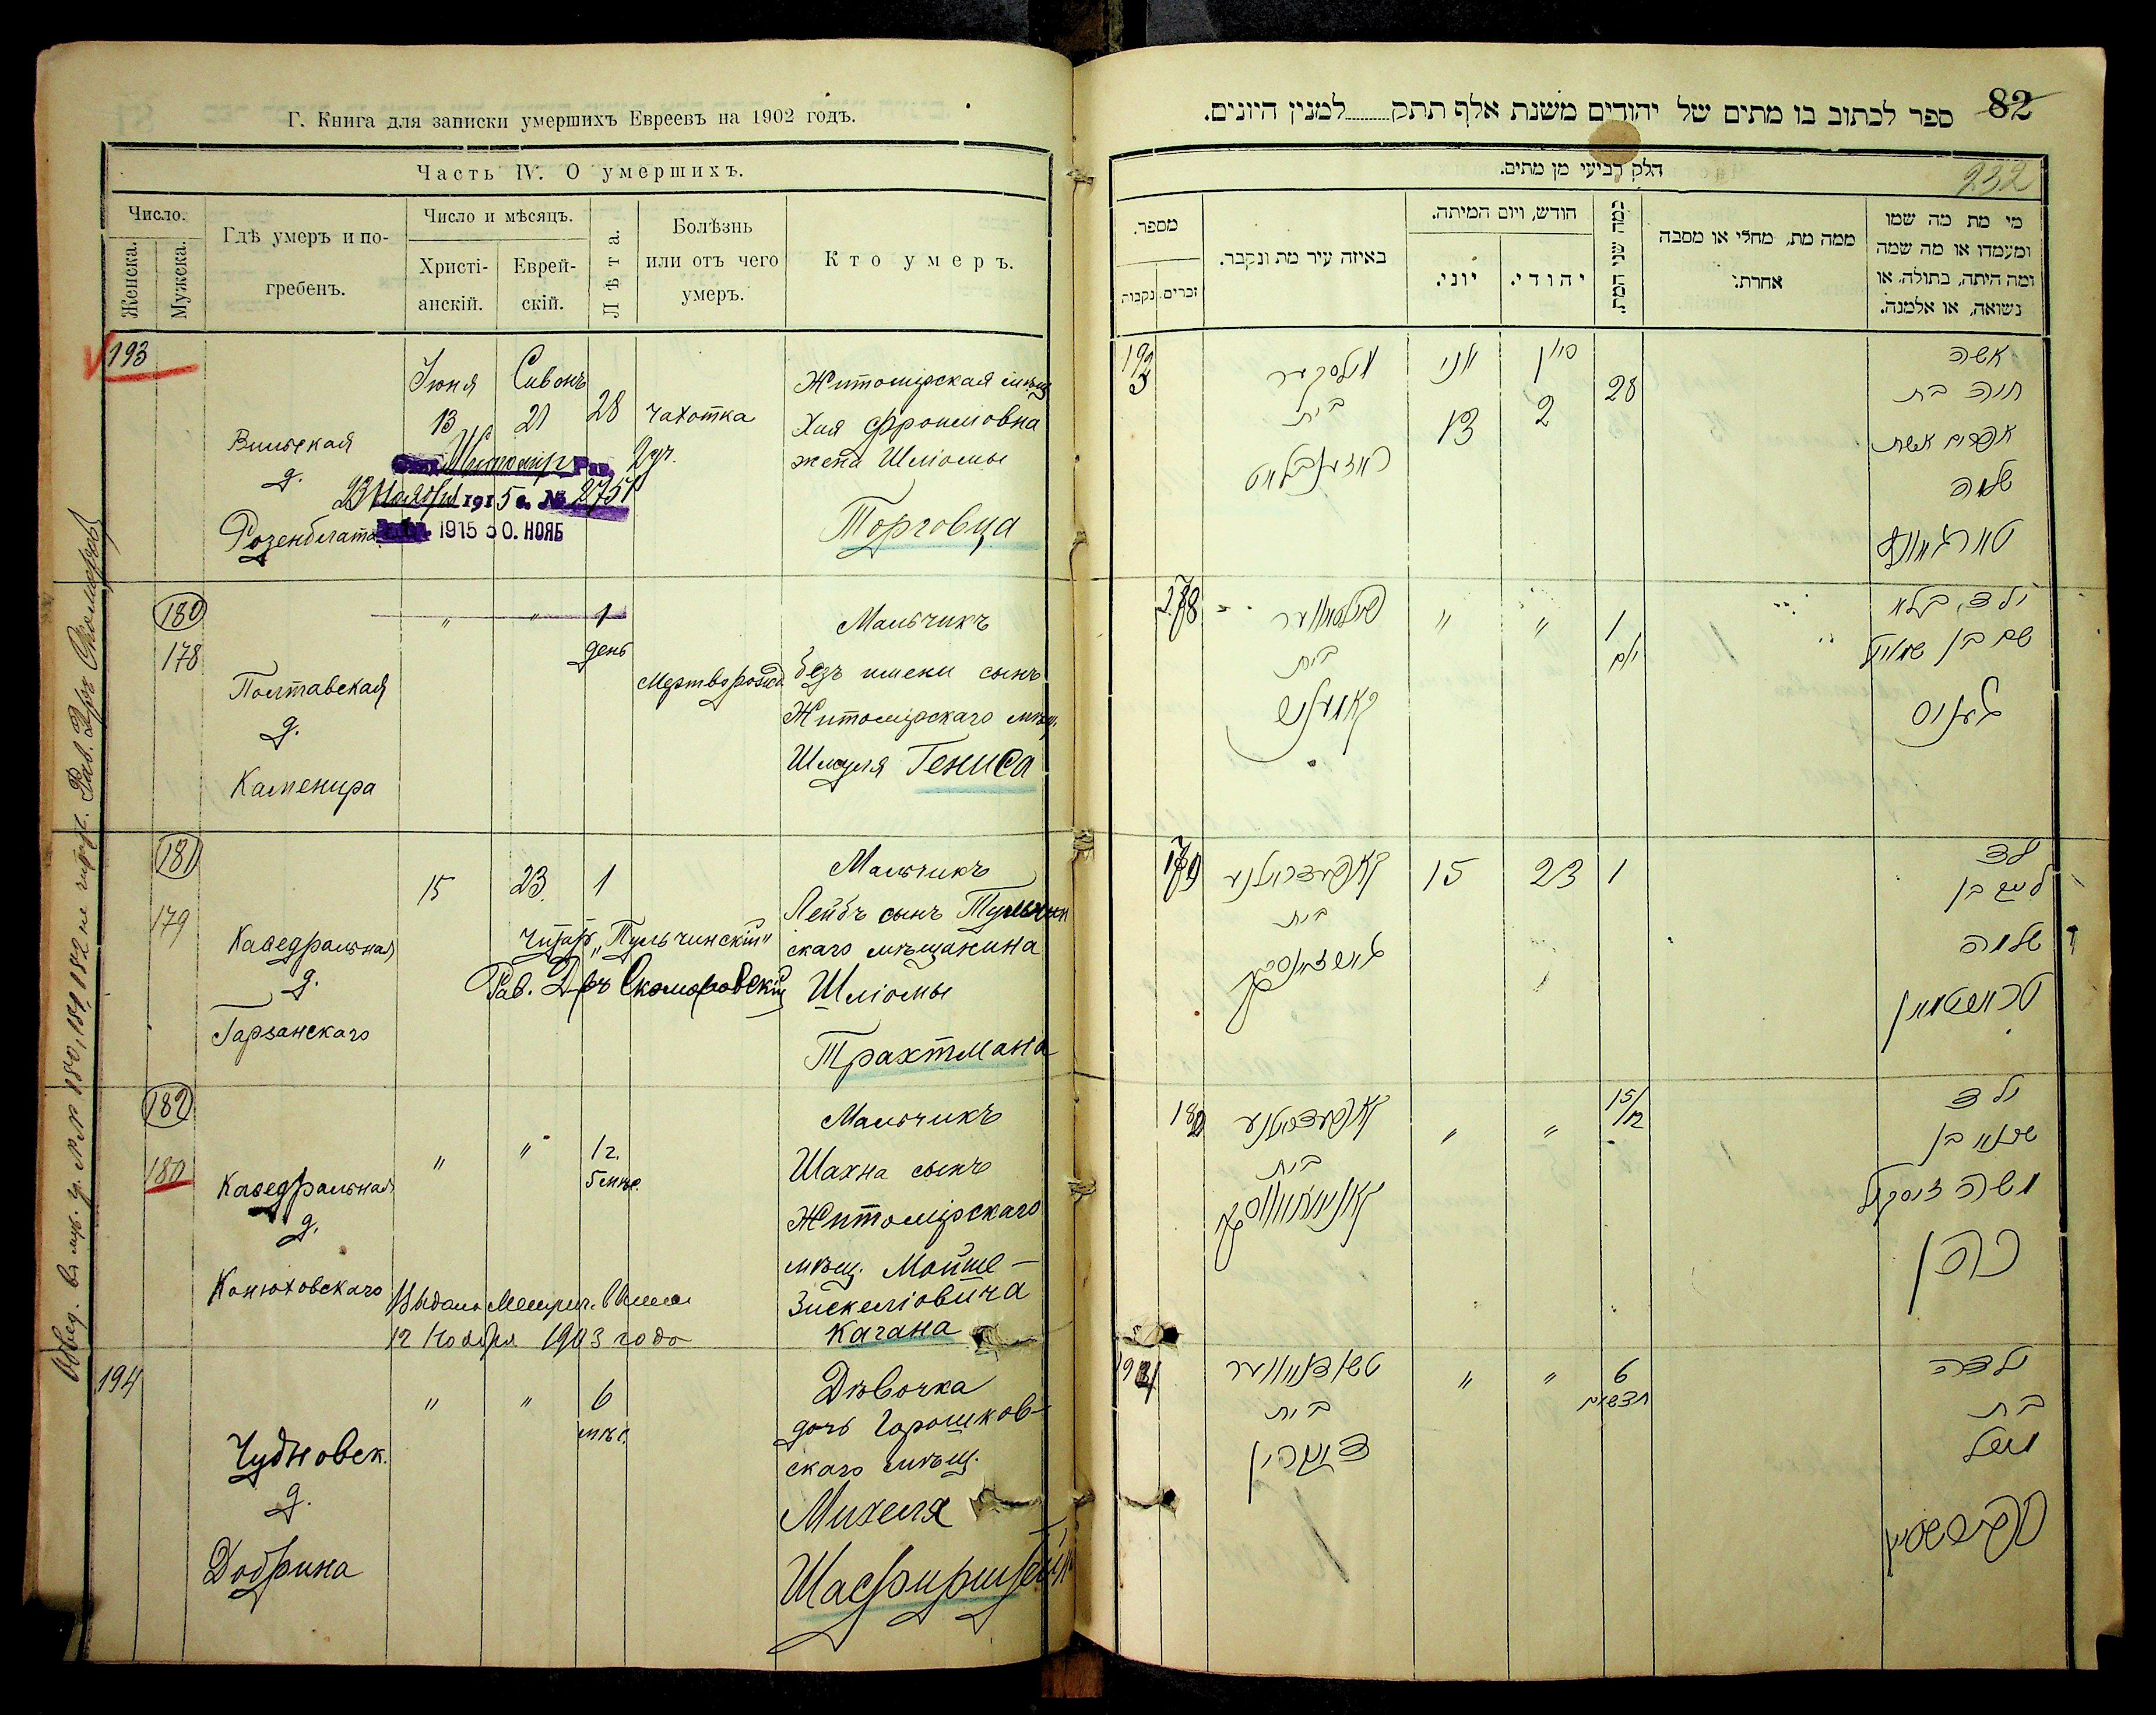 Г. Книга для записки умершихъ Евреевъ на 1902 годъ.
Часть IV. О умершихъ.
Число.
Женска.
Мужеска.
Гдѣ умеръ и по-
гребенъ.
Число и мѣсяцъ.
Христі-
анскій.
Еврей-
скій.
Лѣта.
Болѣзнь
или отъ чего
умеръ.
Кто умеръ.
193
Вильская
д.
Розенблата
Іюня
13
Сивонъ
21
28
чахотка
Житомірская мѣщ
Хая Фроимовна
жена Шліомы
Торговца
Житомір Рав.
23 Ноября 1915 г. № 2751
1915 30. НОЯБ
180
178
Полтавская
д.
Каменира
" " 1
день
Мертворожд
Мальчикъ
безъ имени сынъ
Житомірскаго мѣщ.
Шмуля Гениса
181
179
Каѳедральная
д.
Гарзанскаго
15 23 1
Мальчикъ
Лейбъ сынъ Тульчин
скаго мѣщанина
Шліомы
Трахтмана
читать „Тульчинскій"
Рав. Д-ръ Скоморовскій
182
180
Каѳедральная
д.
Конюховскаго
" " 1 г.
5 мѣс.
Мальчикъ
Шахна сынъ
Житомірскаго
мѣщ. Мойше-
Зискеліовича
Кагана
Выдана Метрич.
12 Ноября 1903 года
194
Чудновск.
д.
Добрина
" " 6
мѣс.
Дѣвочка
дочь Горошков-
скаго мѣщ.
Михеля
Шасфирштейн
№№ 180, 181, 182 не читать. Рав. Д-ръ Скоморовскій
82
ספר לכתוב בו מתים של יהודים משנת אלף תתק למנין היונים.
232
חלק רביעי מן מתים.
מספר.
נקבות
זכרים
באיזה עיר מת ונקבר.
חודש, ויום המיתה.
יוני.
יהודי.
כמה שני המת.
ממה מת, מחלי או מסבה
אחרת.
מי מת מה שמו
ומעמדו או מה שמה
ומה היתה, בתולה, או
נשואה, או אלמנה.
193
ווילסקער
בית
ראזענבלאט
יוני
13
סיון
2
28
אשה
חיה בת
אפרים אשת
שלמה
178
פאלטאווער
בית
" "
1
יום
ילד בלא
שם בן שמואל
געניס
179
קאפעדראלנע
בית
15 23 1
ילד
לייב בן
שלמה
טראכטמאן
180
קאפעדראלנע
בית
" "
15/12
ילד
שכנא בן
משה זיסקיל
כהן
194
טשודנאווער
בית
דאברין
" "
6
חדשים
ילדה
בת
מיכל